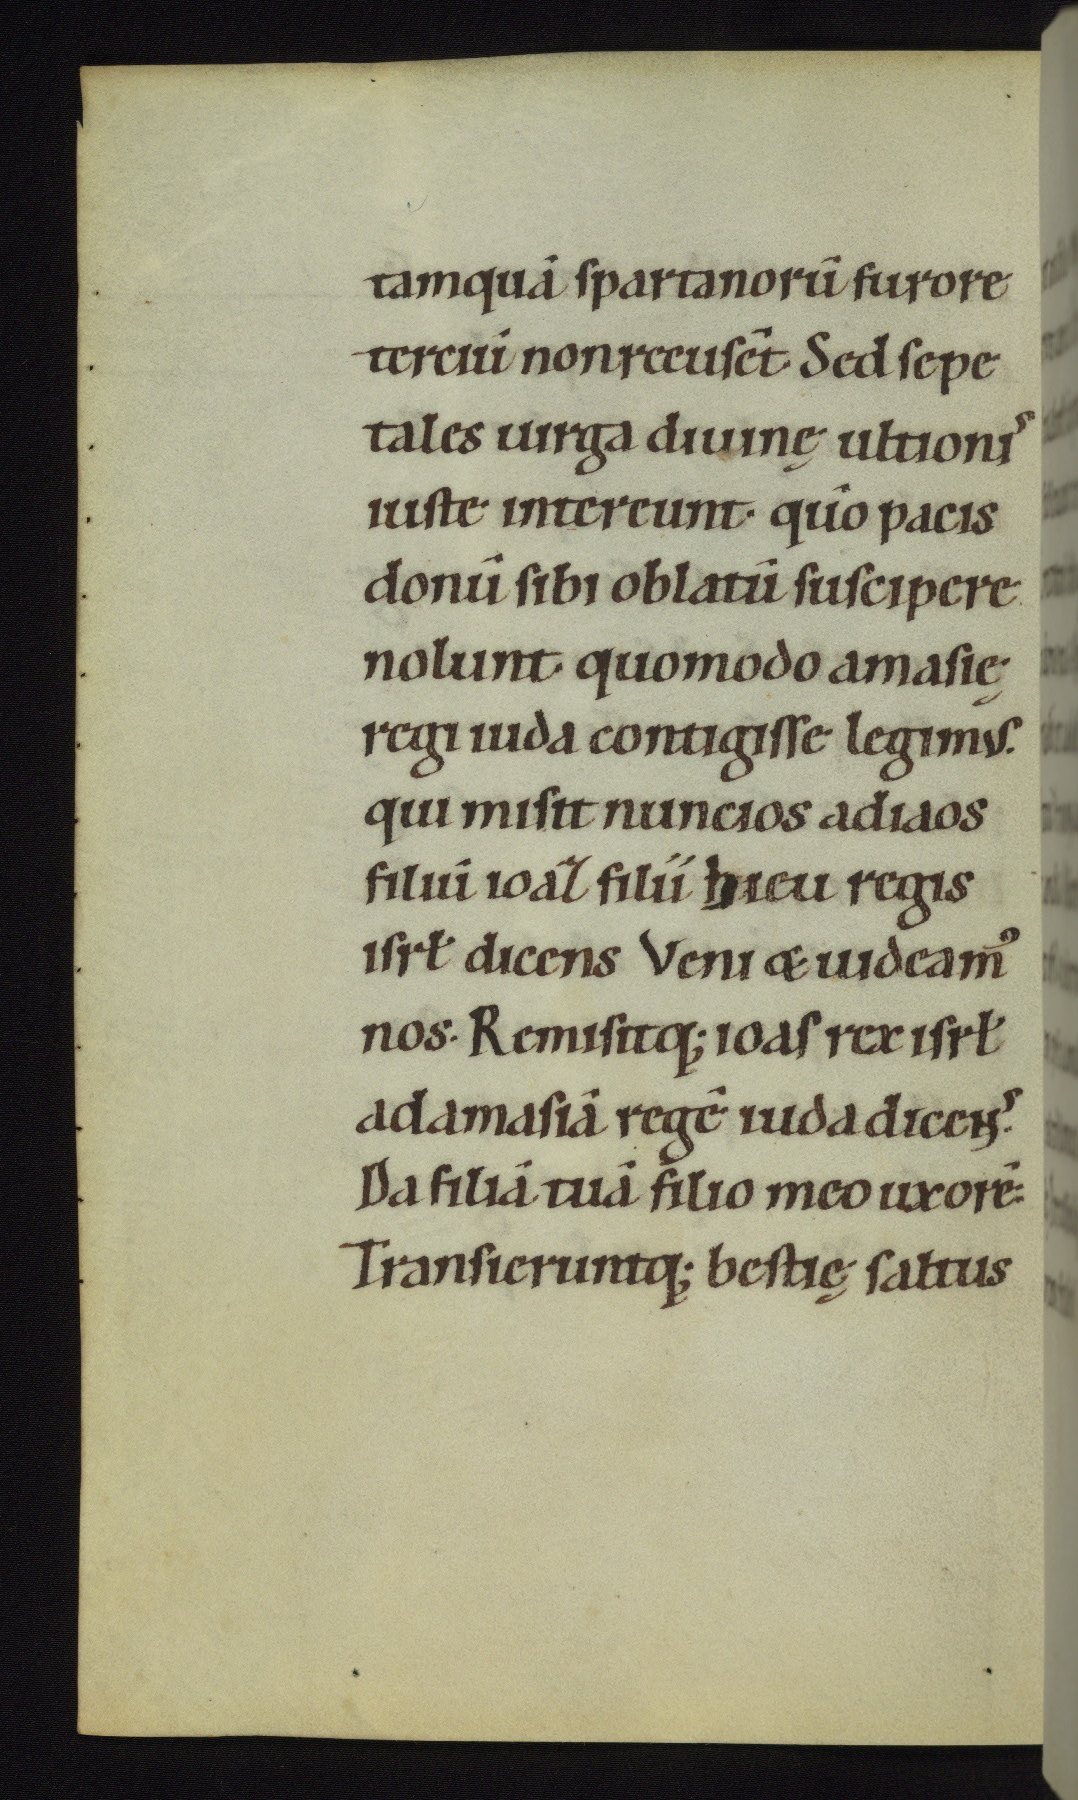 tamquā spartanorū furore
terciūi non recusēt. Sed sepe
tales uirga diuinę ultioniˢ
iuste intereunt. qm̄o pacis
donū sibi oblatū suscipere
nolunt. quomodo amasię
regi iuda contigisse legimus.
qui misit nuncios ad iaos
filiū ioał filii hieu regis
isrł dicens Veni & uideam᷒
nos. Remisitq; ioas rex isrł
ad amasiā regē iuda dicens.
Da filiā tuā filio meo uxorē.
Transieruntq; bestię saltus